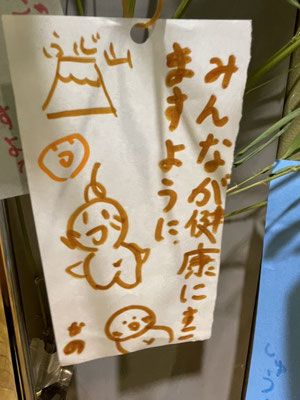 みんなが健康にすご
ますように
ふじ山
なの